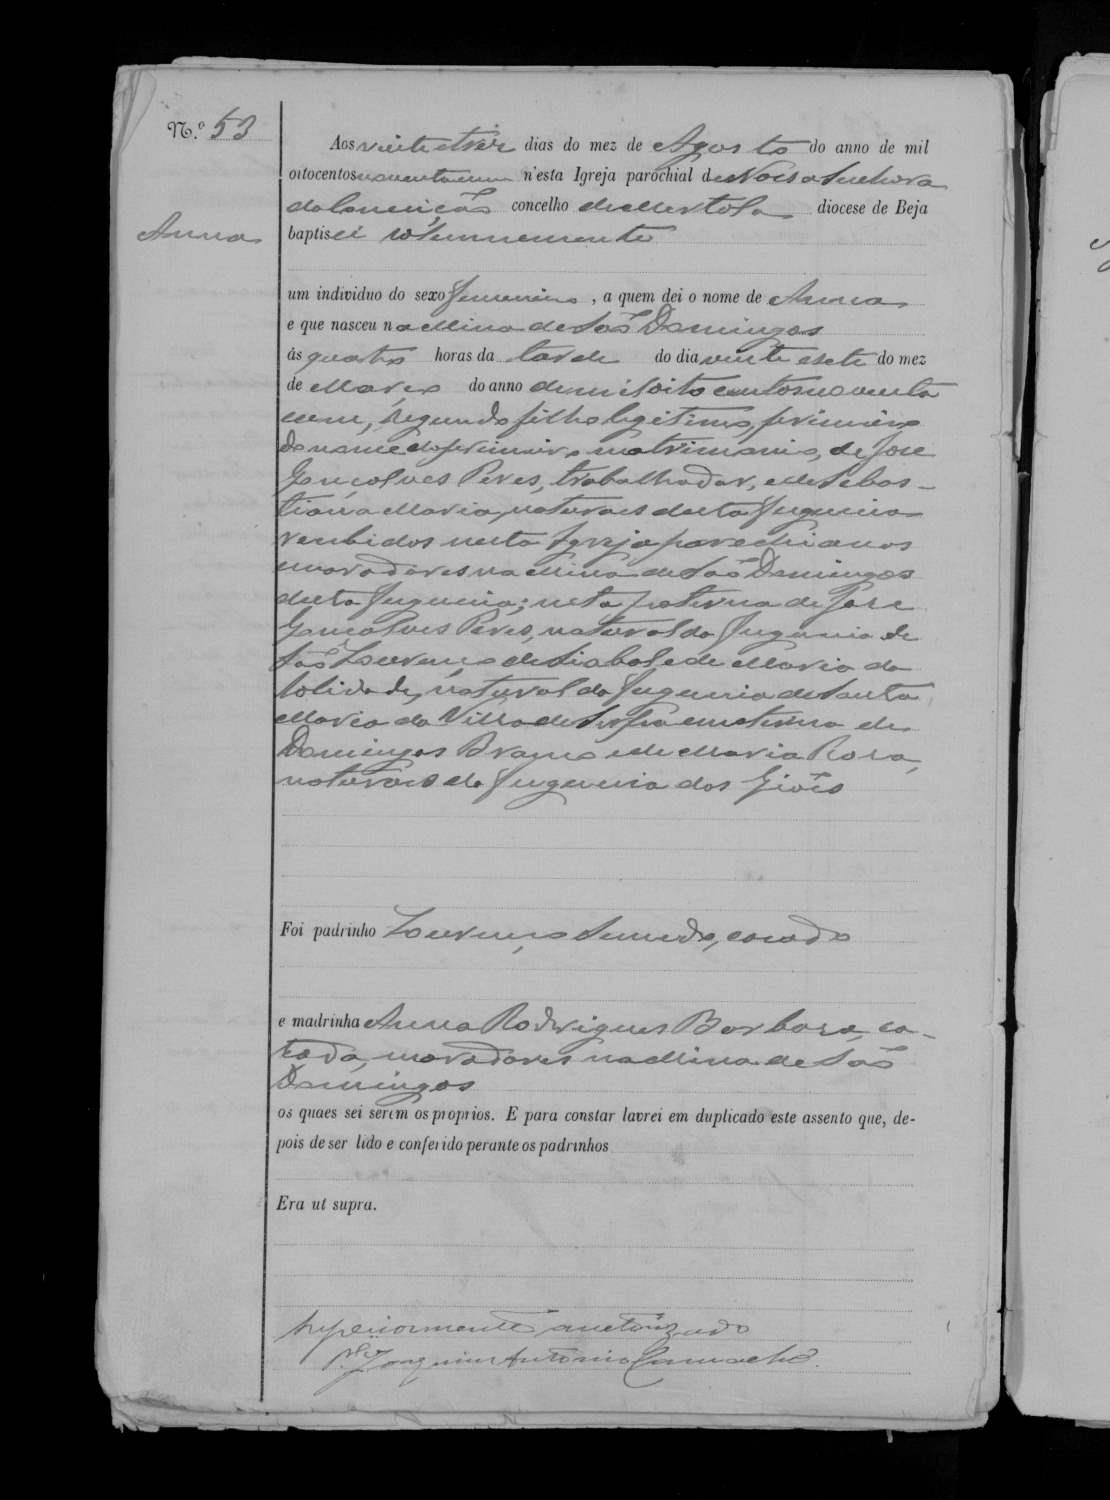 N.º 53
Aos vinte e tres dias do mez de Agosto do anno de mil
oitocentos noventa e um n'esta Igreja parochial de Nossa Senhora
da Conceição concelho de Mertola diocese de Beja
Anna
baptisei solemnemente
um individuo do sexo femenino, a quem dei o nome de Anna
e que nasceu na Mina de São Domingos
ás quatro horas da tarde do dia vinte e sete do mez
de Março do anno de mil oito centos noventa
e um, segundo filho legitimo, primeiro
do nome do primeiro matrimonio, de José
Gonçolves Peres, trabalhador, e de Sebas-
tianna Maria, naturaes desta freguesia
recebidos nesta Igreja parochianos
moradores na Mina de São Domingos
desta freguesia; neta paterna de José
Gonçolves Peres, natural da freguesia de
São Lourenço de e de Maria da
Solidade, natural da freguesia de Santa
Maria da Villa de Serpa e materna de
Domingos e de Maria Rosa,
naturaes da freguesia dos Giões
Foi padrinho Lourenço Semedo, casado
e madrinha Anna Rodrigues Barbara, ca-
sada, moradores na Mina de São
Domingos
os quaes sei serem os proprios. E para constar lavrei em duplicado este assento que, de-
pois de ser lido e conferido perante os padrinhos
Era ut supra.
Superiormente auctorizado
P.e Joaquim Antonio Camacho.